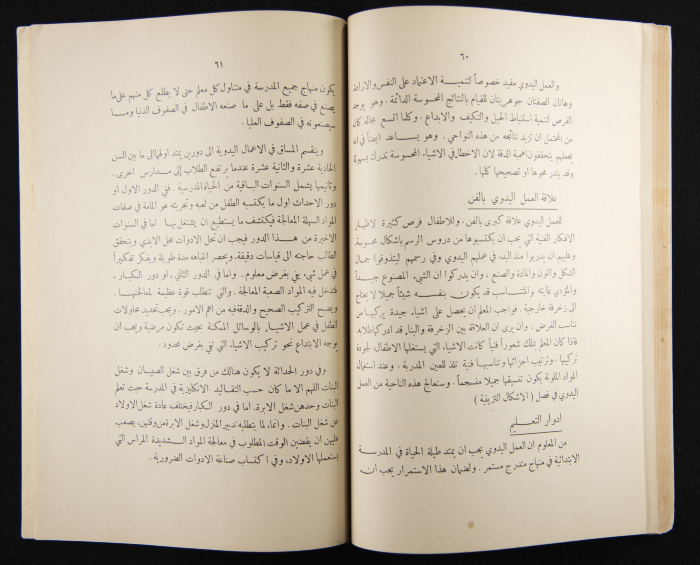 ٦٠
والعمل اليدوي مفيد خصوصاً لتنمية الاعتماد على النفس والارادة
وهاتان الصفتان جوهريتان للقيام بالنتائج المحسوسة الدائمة . وهو يوجد
الفرص لتنمية استنباط الحيل والتكيف والابداع . وكلما اتسع مجاله كان
من المحتمل ان تزيد نتائجه من هذه النواحي . وهو يساعد ايضاً في انه
يجعلهم يتحققون اهمية الدقة لان الاخطار في الاشياء المحسوسة تدرك بسهولة
وقد يتعذر محوها او تصحيحها كلها .
علاقة العمل اليدوي بالفن
للعمل اليدوي علاقة كبرى بالفن . وللاطفال فرص كثيرة لاظهار
الافكار الفنية التي يجب ان يكتسبوها من دروس الرسم باشكال محسوسة
وعليهم ان يدربوا منذ البدء في عملهم اليدوي وفي رسمهم ليتذوقوا جمال
الشكل واللون والمادة والصنع ، وان يدركوا ان الشيء المصنوع جيداً
والمؤدي غايته والمتناسب قد يكون بنفسه شيئاً جميلا لا يحتاج
الى زخرفة خارجية . فواجب المعلم ان يحصل على اشياء جيدة يركبها من
تناسب الغرض ، وان يرى ان العلاقة بين الزخرفة والبناء قد ادركها طلابه .
فاذا كان المعلم يملك شعوراً فنياً كانت الاشياء التي يستغلها الاطفال ، لجودة
تركيبها ، وترتيب اجزائها وتناسبها فنية تلذ للعين المدربة . وعند استعمال
المواد الملونة يكون تنسيقها جميلا منسجماً . وسنعالج هذه الناحية من العمل
اليدوي في فصل ( الاشكال التزيينية )
ادوار التعليم
من المعلوم ان العمل اليدوي يجب ان يمتد طيلة الحياة في المدرسة
الابتدائية في منهاج متدرج مستمر . ولضمان هذا الاستمرار يجب ان
٦١
يكون منهاج جميع المدرسة في متناول كل معلم حتى لا يطلع كل منهم على ما
يصنع في صفه فقط بل على ما صنعه الاطفال في الصفوف الدنيا وما
سيصنعونه في الصفوف العليا .
وينقسم المساق في الاعمال اليدوية الى دورين يمتد اولهما الى ما بين السن
الحادية عشرة والثانية عشرة عندما يرتفع الطلاب الى مدارس اخرى .
وثانيهما يشمل السنوات الباقية من الحياة المدرسية . ففي الدور الاول او
دور الاحداث اول ما يكتسبه الطفل من لعبه وتجربته هو المامه في صفات
المواد السهلة المعالجة فيكتشف ما يستطيع ان يشتغل بها . اما في السنوات
الاخيرة من هذا الدور فيجب ان تحل الادوات محل الايدي ويتحقق
الطالب حاجته الى قياسات دقيقة ، ويحصر انتباهه مدة طويلة ويفكر تفكيراً
في عمل شيء يفي بغرض معلوم . واما في الدور الثاني ، او دور الكبار ،
فتدخل فيه المواد الصعبة المعالجة ، والتي تتطلب قوة عظيمة لمعالجتها .
ويصبح التركيب الصحيح والدقة فيه من اهم الامور . ويجب تحديد محاولات
الطفل في عمل الاشياء بالوسائل الممكنة بحيث تكون مرضية ويجب ان
يوجه الابتداع نحو تركيب الاشياء التي تفي بغرض محدود .
وفي دور الحداثة لا يكون هنالك من فرق بين شغل الصبيان وشغل
البنات اللهم الا ما كان حسب التقاليد الانكليزية في المدرسة حيث تعلم
البنات وحدهن شغل الابرة . اما في دور الكبار فيختلف عادة شغل الاولاد
عن شغل البنات . وانما ، لما يتطلبه تدبير المنزل وشغل الابرة من وقتهن ، يصعب
عليهن ان يقضين الوقت المطلوب في معالجة المواد الشديدة المراس التي
يستعملها الاولاد ، وفي اكتساب صناعة الادوات الضرورية .